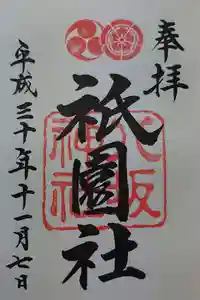 奉拝
八坂神社
祇園社
平成三十年十一月七日